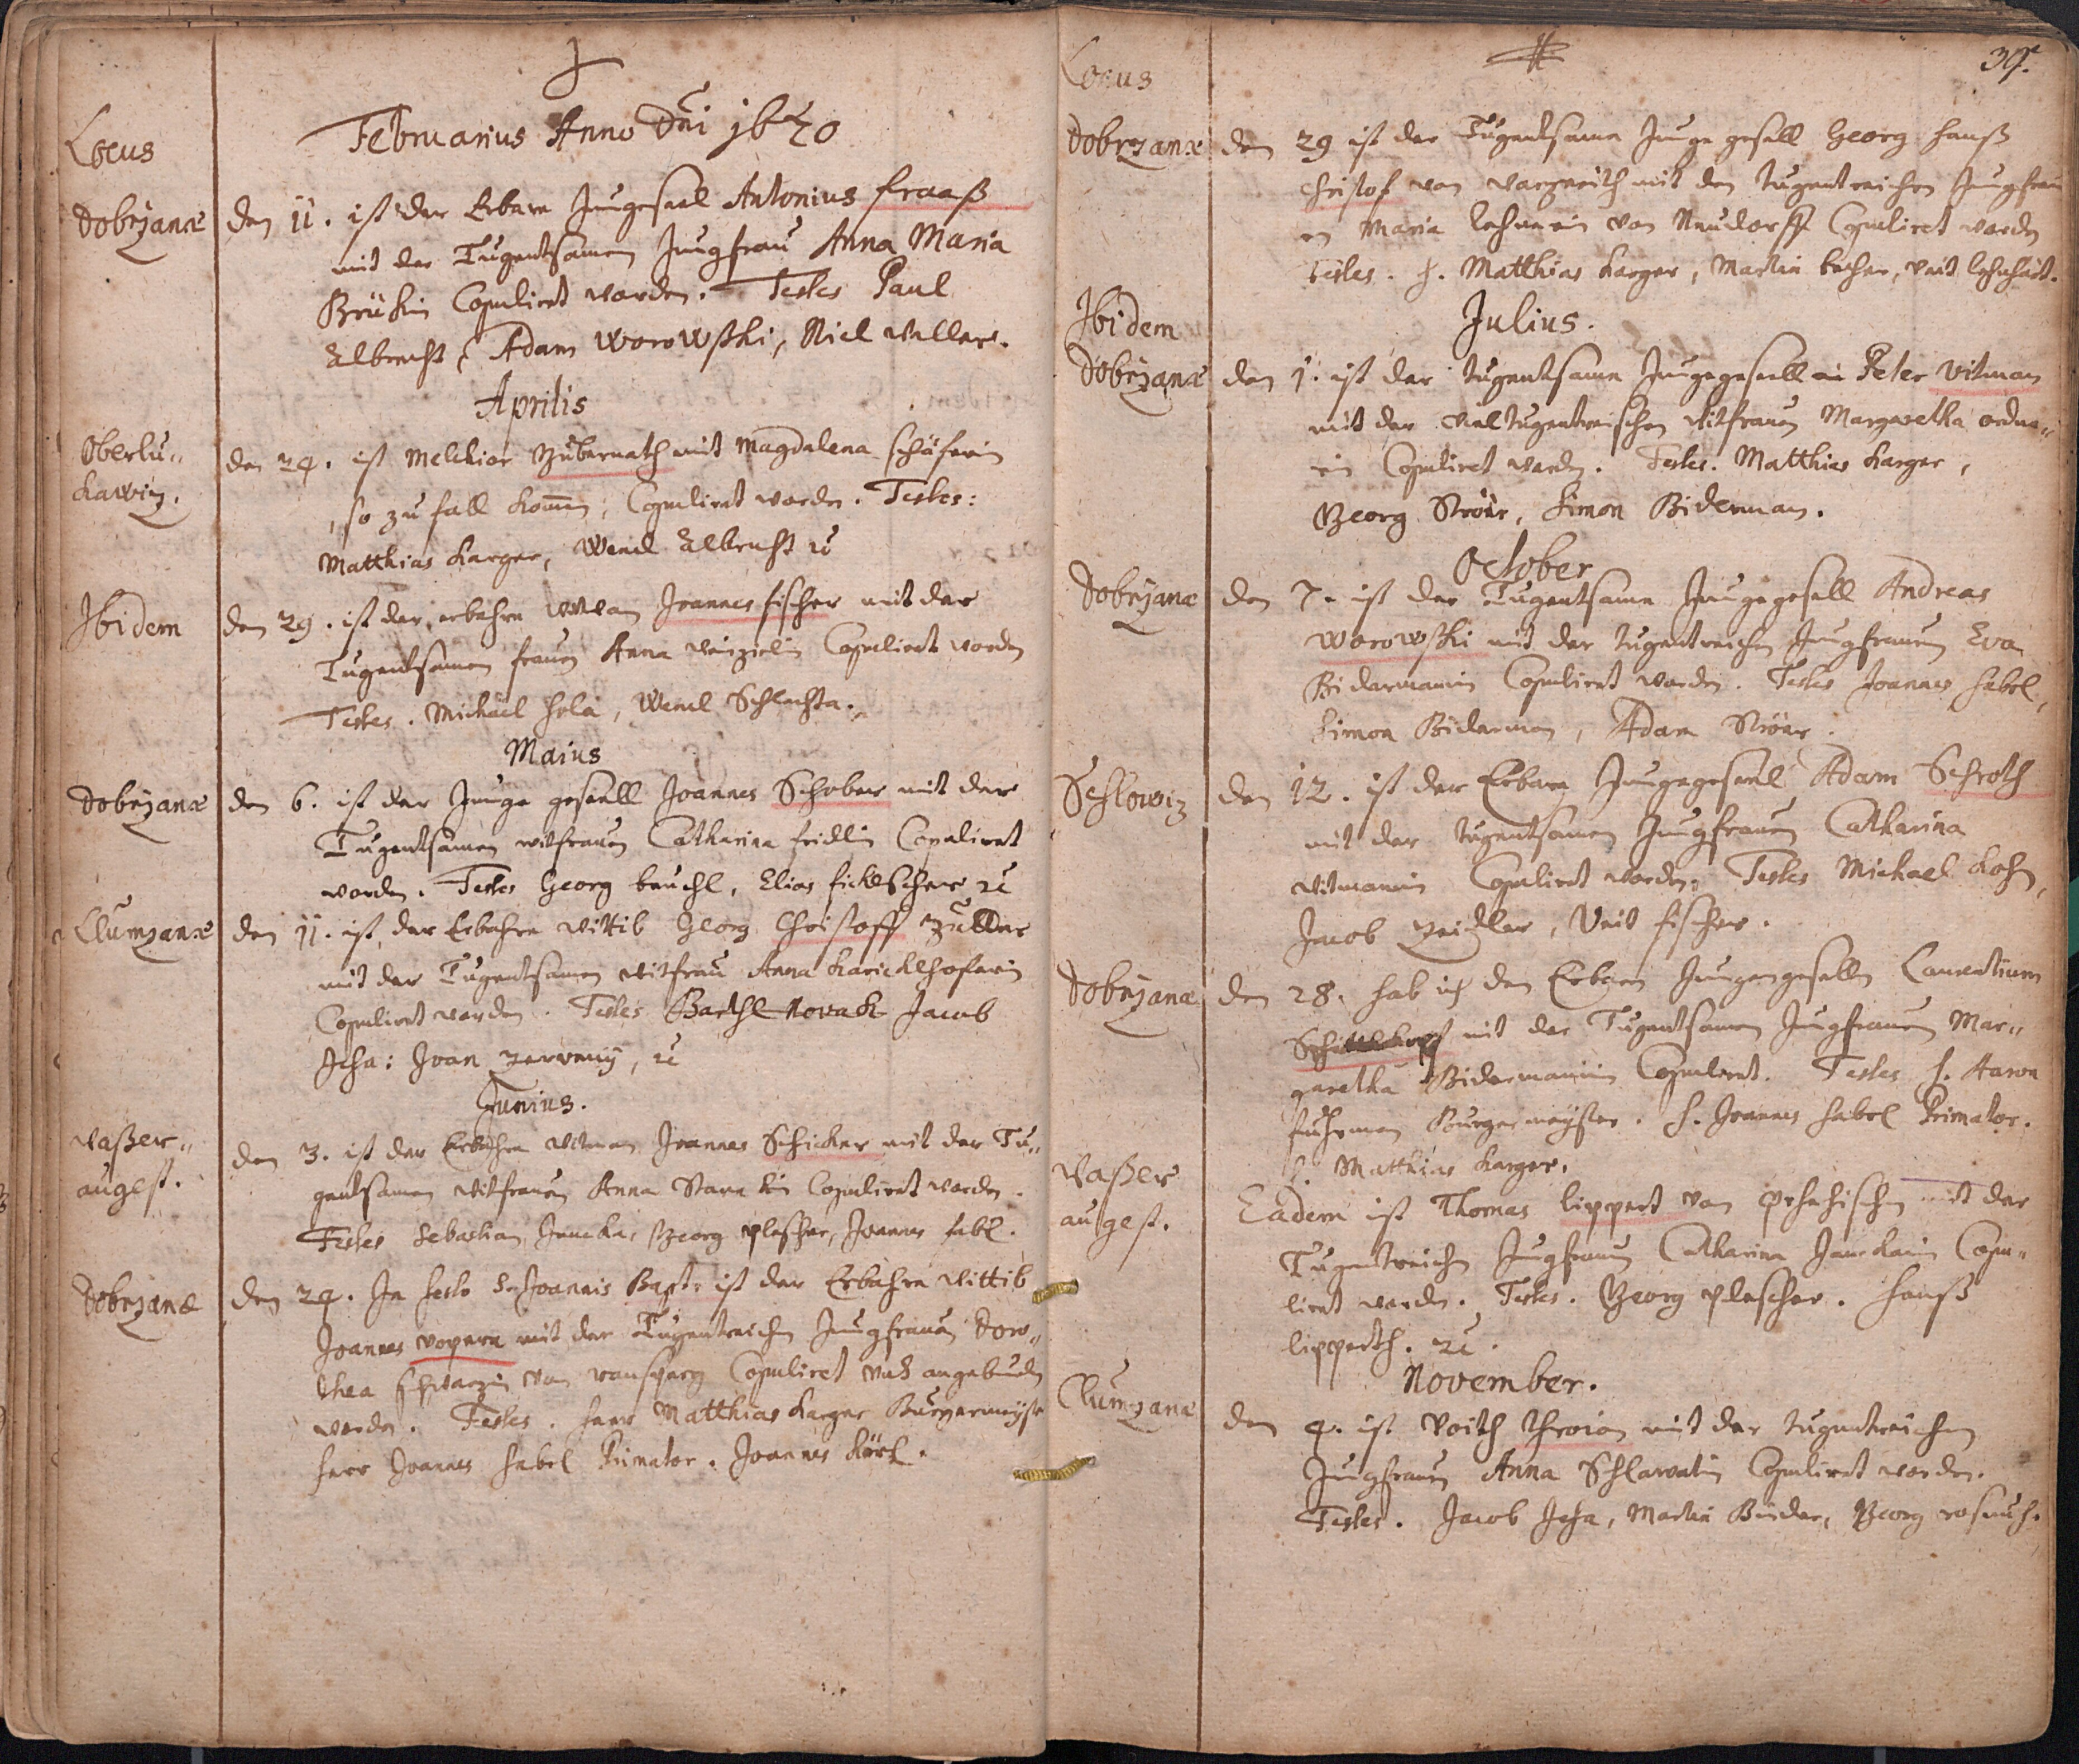 Locus
Februarius Anno Dni 1670
Dobrzanæ
den 11. ist der Erbare Jungesael Antonius fraaß
mit der Tugentsamen Jungfrau Anna Maria
Copuliret worden. Testes Paul
Albrecht, Adam Worowßki, Nicl Waller.
Aprilis
Oberlu„
kawiz.
den 24. ist Melchior Zubernath mit Magdalena schäferin
, so zu fall komen, Copuliret worden. Testes:
Matthias Karger, Wencl Albrecht ꝛc
Ibidem
den 29. ist der erbahre Joannes fischer mit der
Tugentsamen frauen Anna Copuliert worden
Testes. Michael hola, Wencl Schlechta.
Maius
Dobrzanæ
den 6. ist der Junge geseell Joannes Schober mit der
Tugentsamen witfrauen Catharina fridlin Copuliret
worden. Testes Georg beuchl, Elias ficklscherr ꝛc
Clumzanæ
den 11. ist der Erbahre Wittib Georg Christoff Züller
mit der Tugentsamen Witfrau Anna Karicklhoferin
Copuliret worden. Testes Barthl Novack Jacob
Jcha: Joan zerveny, ꝛc
Junius.
Waßer„
augest.
den 3. ist der Erbahre Witman Joannes Schicker mit der Tu„
gentsamen Witfrauen Anna Copulirat worden.
Testes Sebastian Janeka, Georg plescher, Joannes fabl.
Dobrzanæ
den 24. In festo S. Joannis Bapt. ist der Erbahre Wittib
Joannes vopera mit der Tugentreichen Jungfrauen Doro„
thea schwarzin von ronsperg Copuliret
worden. Testes. herr Matthias Karger Burgermeyst
herr Joannes habel Primator. Joannes Körl.
39.
Locus
Dobrzanæ
den 29 ist der Tugentsame Junge gesell Georg hanß
Christof von mit den tugentreichen Jungfrau
en Maria von Neudorff Copuliret worden
Testes. H. Matthias Karger, Martin becher, Veit lehnhart.
Ibidem
Julius.
Dobrzanæ
den 1. ist der tugentsame Jungegesell Peter Vitman
mit der vieltugentreichen Witfrauen Margaretha ordn„
in Copuliret worden. Testes. Matthias Karger,
Georg Ströer, Simon Biderman.
October
Dobrzanæ
den 7. ist der Tugentsame Jungegesell Andreas
Worowßki mit der tugentreichen Jungfrauen Eva
Bidermanin Copulirat worden. Testes Joannes habel,
Simon Biderman, Adam Ströer.
Sehlowiz
den 12. ist der Erbare Jungegesael Adam Schroth
mit der tugentsamen Jungfrauen Catharina
Witmanin Copulirt worden. Testes Michael Kohn,
Jacob zeidler, Veit fischer.
Dobrzanæ
den 28. hab ich den Erbaren Jungengesellen Laurentium
mit der Tugentsamen Jungfrauen Mar„
garetha Bidermanin Copulirat. Testes H. Aaron
fuhrman Bourgermeyster. H. Joannes habel Primator.
H. Matthias Karger.
Waßer
augest.
Eadem ist Thomas lippert von mit der
Tugentreichen Jungfrauen Catharina Janekain Copu„
lirat worden. Testes. Georg plescher. hanß
lipperth. ꝛc.
November.
Clumzanæ
den 4. ist Voith throion mit der tugentreichen
Jungfrauen Anna Schlawatin Copulirat worden.
Testes. Jacob Jcha, Martin Binder, Georg